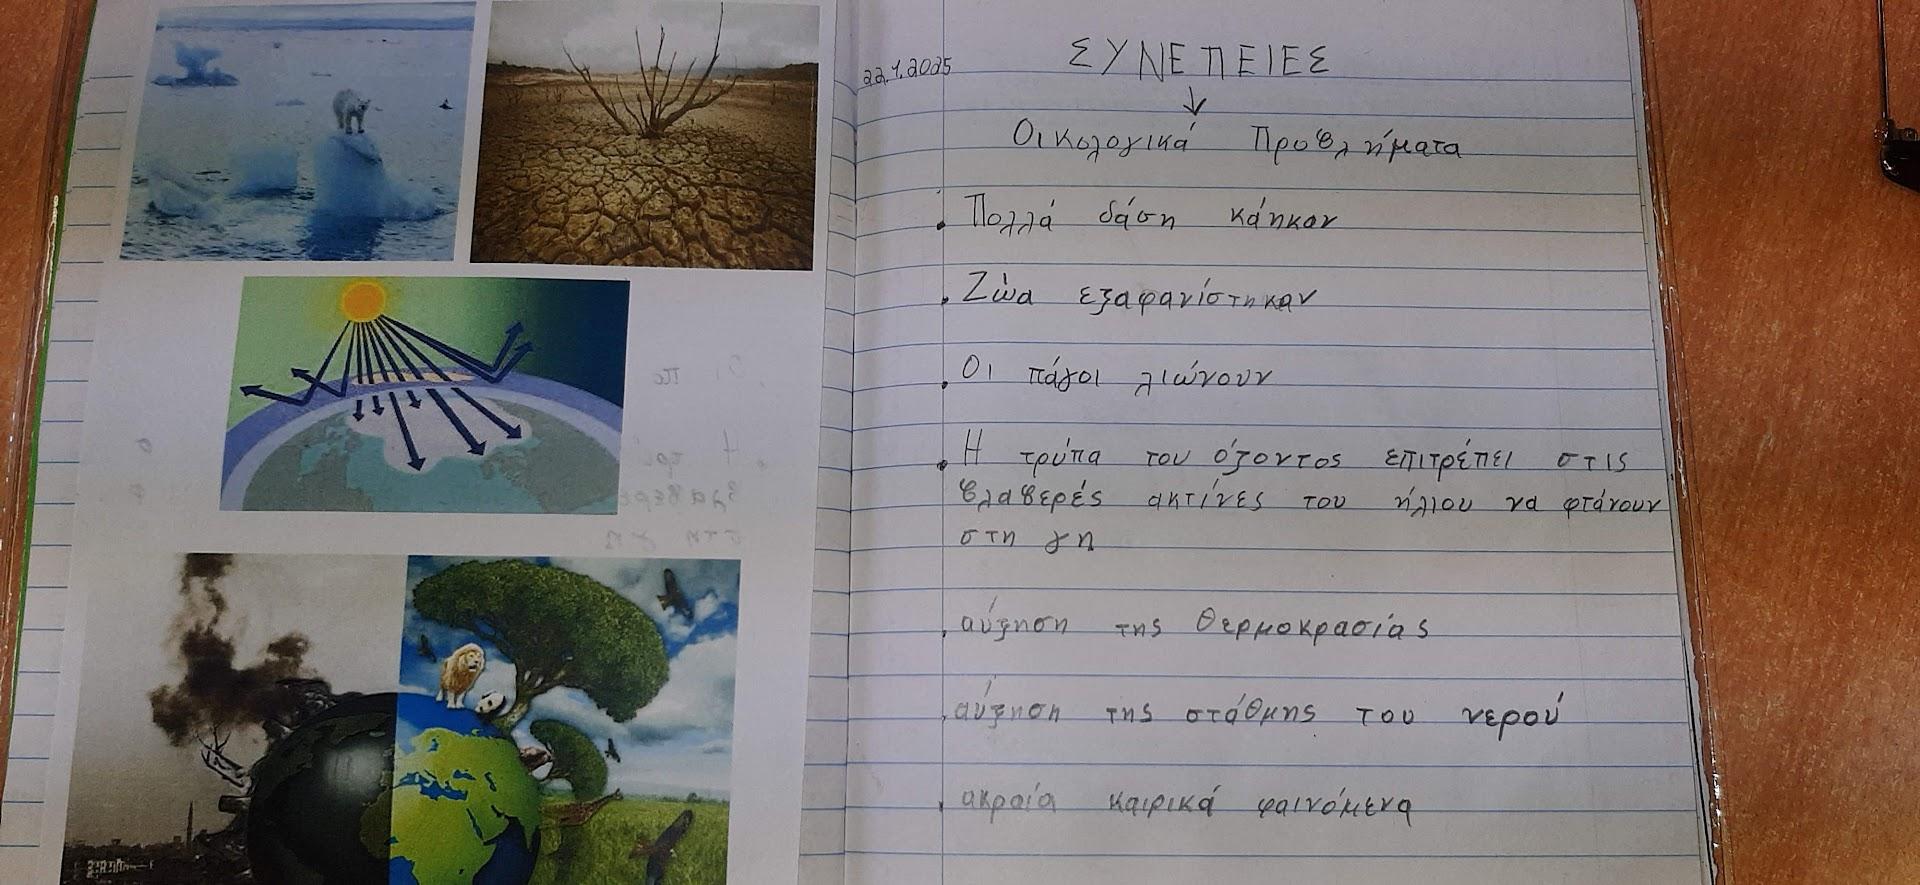 22.1.2025
ΣΥΝΕΠΕΙΕΣ
↓
Οικολογικά Προβλήματα
• Πολλά δάση κάηκαν
• Ζώα εξαφανίστηκαν
• Οι πάγοι λιώνουν
• Η τρύπα του όζοντος επιτρέπει στις
βλαβερές ακτίνες του ήλιου να φτάνουν
στη γη
• αύξηση της θερμοκρασίας
• αύξηση της στάθμης του νερού
• ακραία καιρικά φαινόμενα